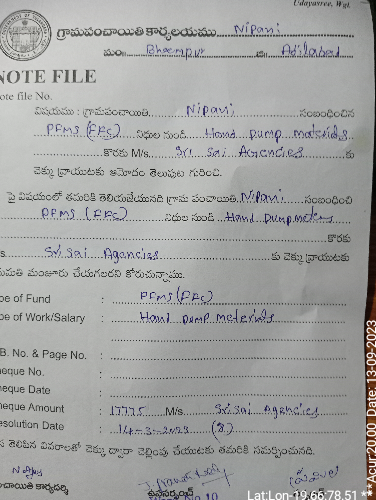 Udayasree, Wgl.
గ్రామపంచాయితి కార్యాలయము Nipani
మం॥ Bheempur జి॥ Adilabad
NOTE FILE
ote file No.
విషయము : గ్రామపంచాయితి Nipani సంబంధించిన
PFMS (FFC) నిధుల నుండి Hand pump materials
కొరకు M/s Sri Sai Agencies కు
చెక్కు వ్రాయుటకు ఆమోదం తెలుపుట గురించి.
పై విషయంలో తమరికి తెలియజేయునది గ్రామ పంచాయితి Nipani సంబంధించి
PFMS (FFC) నిధుల నుండి Hand pump meters
కొరకు
s Sri Sai Agencies కు చెక్కు వ్రాయుటకు
మతి మంజూరు చేయగలరని కోరుచున్నాము.
pe of Fund : PFMS (FFC)
pe of Work/Salary : Hand pump meterials
B. No. & Page No. :
heque No. :
heque Date :
heque Amount : 17775 M/s Sri Sai Agencies
esolution Date : 14-3-2023 (8)
తెలిపిన వివరాలతో చెక్కు ద్వారా చెల్లింపు చేయుటకు తమరికి సమర్పించనది.
పంచాయితి కార్యదర్శి ఉపసర్పంచ్
Lat:Lon-19.66,78.51
**Acu:20.00 Date:13-09-2023